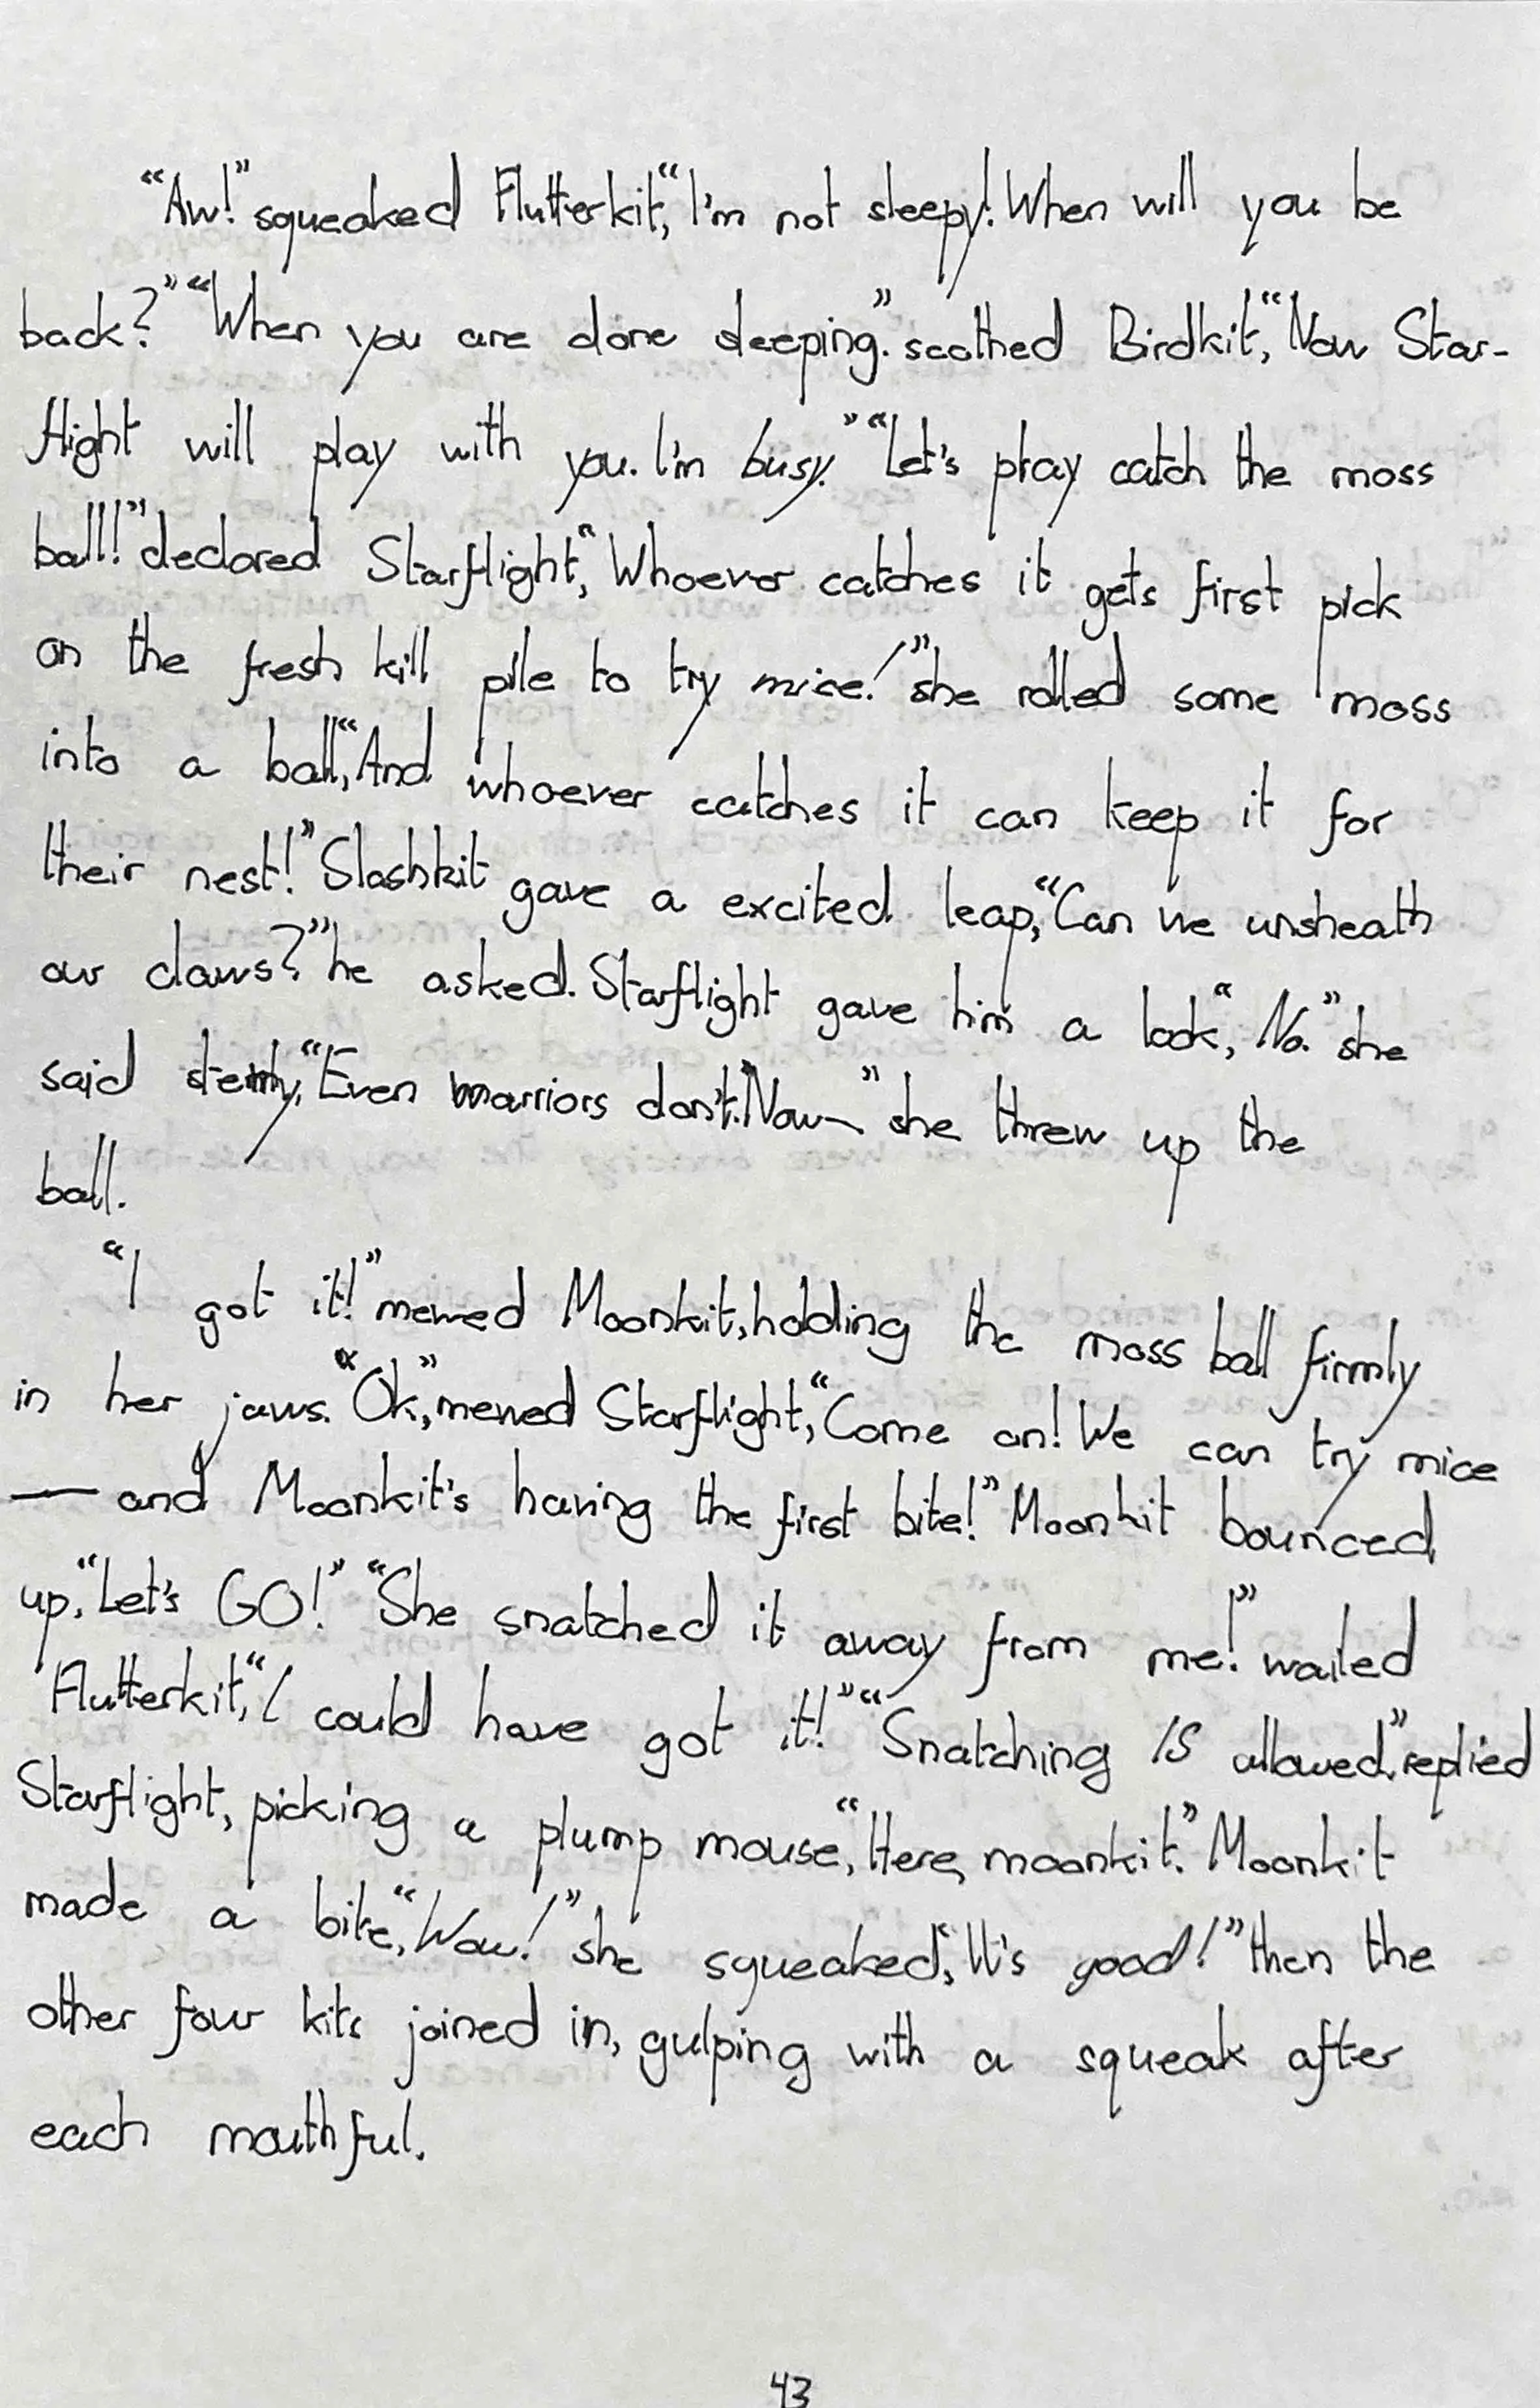 "Aw!" squeaked Flutterkit, "I'm not sleepy! When will you be
back?" "When you are done sleeping." soothed Birdkit, "Now Star-
flight will play with you. I'm busy." "Let's play catch the moss
ball!" declared Starflight, "Whoever catches it gets first pick
on the fresh kill pile to try mice!" she rolled some moss
into a ball, "And whoever catches it can keep it for
their nest!" Slashkit gave a excited leap, "Can we unsheath
our claws?" he asked. Starflight gave him a look, "No." she
said sternly, "Even warriors don't. Now—" she threw up the
ball.
"I got it!" mewed Moonkit, holding the moss ball firmly
in her jaws. "Ok," mewed Starflight, "Come on! We can try mice
— and Moonkit's having the first bite!" Moonkit bounced
up, "Let's GO!" "She snatched it away from me!" wailed
Flutterkit, "I could have got it!" "Snatching IS allowed," replied
Starflight, picking a plump mouse, "Here, moonkit." Moonkit
made a bite, "Wow!" she squeaked, "It's good!" then the
other four kits joined in, gulping with a squeak after
each mouthful.
43